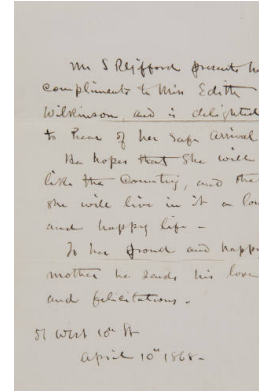 Mr S R Gifford presents h
compliments to Miss Edith
Wilkinson, and is delighted
to hear of her safe arrival
He hopes that she will
like the Country, and tha
she will live in it a lon
and happy life -
To her proud and happ
mother he sends his love
and felicitations -
51 West 10th St
April 10th 1868-